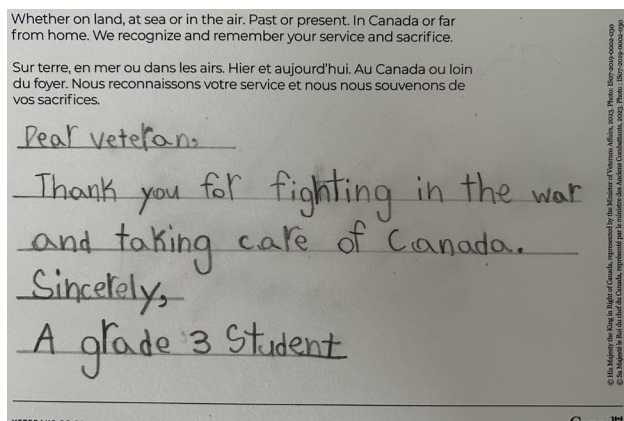 Whether on land, at sea or in the air. Past or present. In Canada or far
from home. We recognize and remember your service and sacrifice.
Sur terre, en mer ou dans les airs. Hier et aujourd'hui. Au Canada ou loin
du foyer. Nous reconnaissons votre service et nous nous souvenons de
vos sacrifices.
Dear veteran,
Thank you for fighting in the war
and taking care of Canada.
Sincerely,
A grade 3 Student
© His Majesty the King in Right of Canada, represented by the Minister of Veterans Affairs, 2023. Photo: IS07-2019-0002-039
© Sa Majesté le Roi du chef du Canada, représenté par le ministre des Anciens Combattants, 2023. Photo : IS07-2019-0002-039